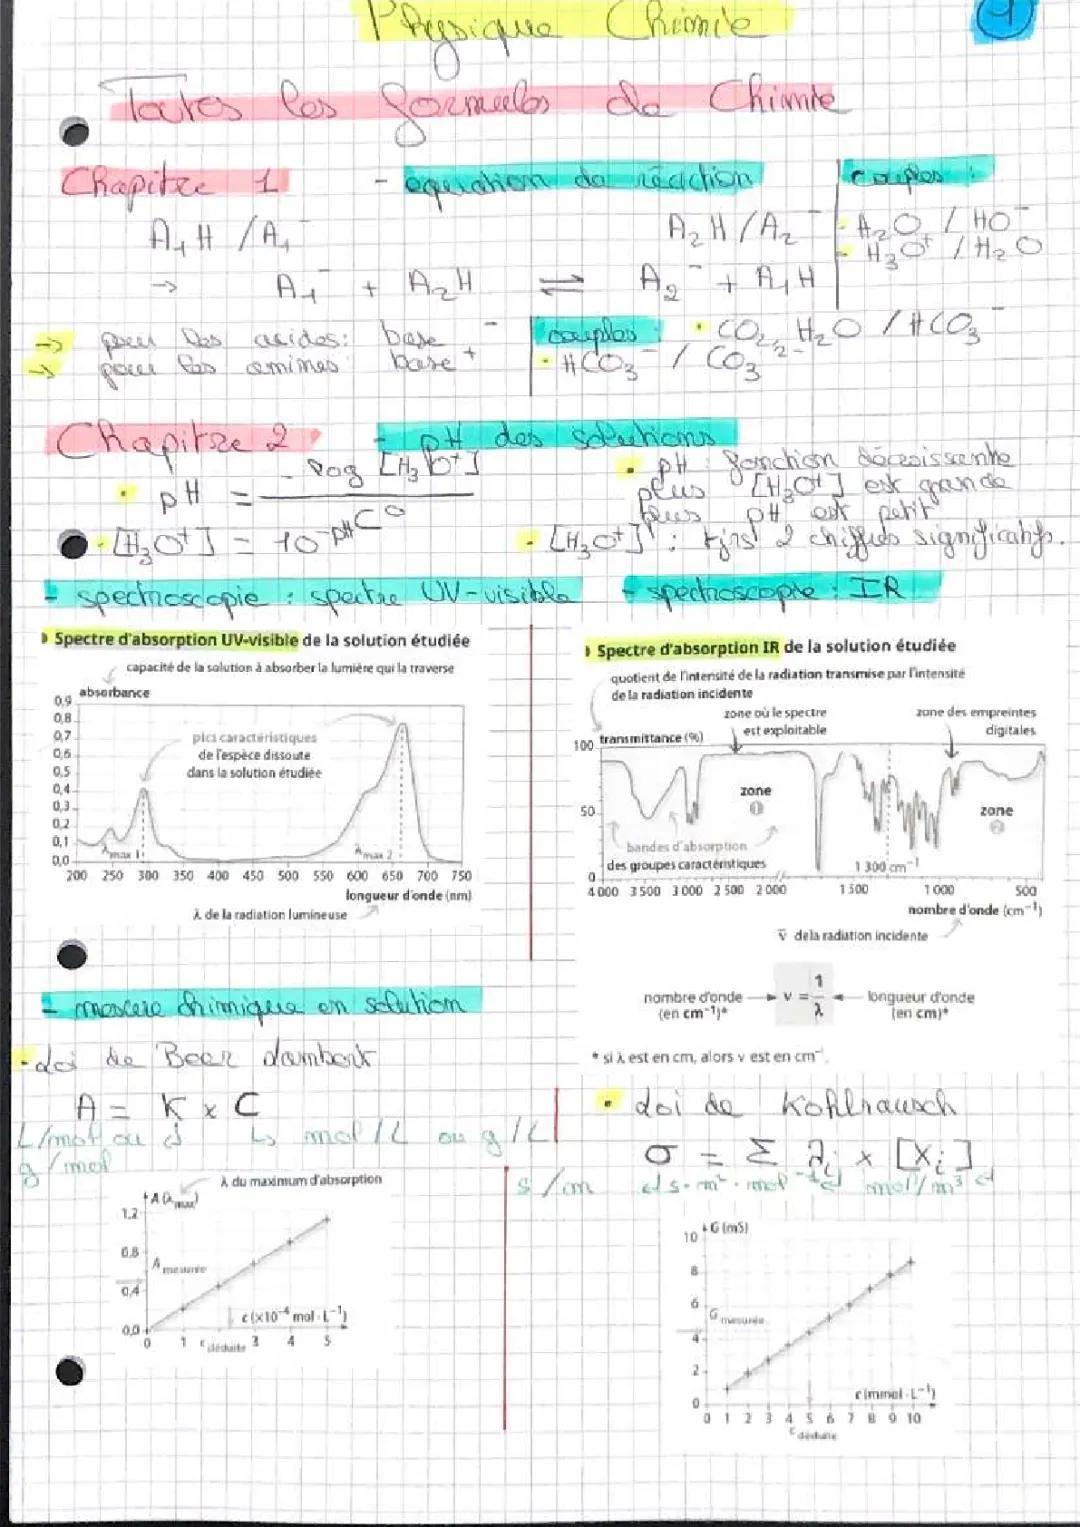 Physique Chimie
1
Toutes les formules de Chimie
Chapitre 1 - équation de réaction
couples :
A₁H / A₁⁻ A₂H / A₂⁻
- H₂O / HO⁻
- H₃O⁺ / H₂O
→ A₁⁻ + A₂H ⇌ A₂⁻ + A₁H
→ pour les acides : base⁻
→ pour les amines : base⁺
couples • CO₂, H₂O / HCO₃⁻
• HCO₃⁻ / CO₃²⁻
Chapitre 2 - pH des solutions
• pH = - log [H₃O⁺] / C°
• pH : fonction décroissante
plus [H₃O⁺] est grande
plus pH est petit
• [H₃O⁺] = 10^-pH
• [H₃O⁺] : tjrs 2 chiffres significatifs.
- spectroscopie : spectre UV-visible
- spectroscopie : IR
Spectre d'absorption UV-visible de la solution étudiée
capacité de la solution à absorber la lumière qui la traverse
absorbance
0,9
0,8
0,7
0,6
0,5
0,4
0,3
0,2
0,1
0,0
pics caractéristiques
de l'espèce dissoute
dans la solution étudiée
λmax 1
λmax 2
200 250 300 350 400 450 500 550 600 650 700 750
longueur d'onde (nm)
λ de la radiation lumineuse
Spectre d'absorption IR de la solution étudiée
quotient de l'intensité de la radiation transmise par l'intensité
de la radiation incidente
zone où le spectre
est exploitable
zone des empreintes
digitales
transmittance (%)
100
50
0
zone
1
zone
2
bandes d'absorption
des groupes caractéristiques
1 300 cm⁻¹
4 000 3 500 3 000 2 500 2 000 1 500 1 000 500
nombre d'onde (cm⁻¹)
ν̄ de la radiation incidente
nombre d'onde
(en cm⁻¹)*
ν = 1/λ
longueur d'onde
(en cm)*
* si λ est en cm, alors ν est en cm⁻¹.
- mesure chimique en solution
• Loi de Beer Lambert
A = K × C
L/mol ou
g/mol
↳ mol/L ou g/L
λ du maximum d'absorption
A (λmax)
1,2
0,8
0,4
0,0
A mesurée
c (×10⁻⁴ mol·L⁻¹)
0 1 c déduite 3 4 5
• Loi de Kohlrausch
σ = Σ λi × [Xi]
S/m
S·m²·mol⁻¹
mol/m³
G (mS)
10
8
6
4
2
0
G mesurée
c (mmol·L⁻¹)
0 1 2 3 4 5 6 7 8 9 10
c déduite